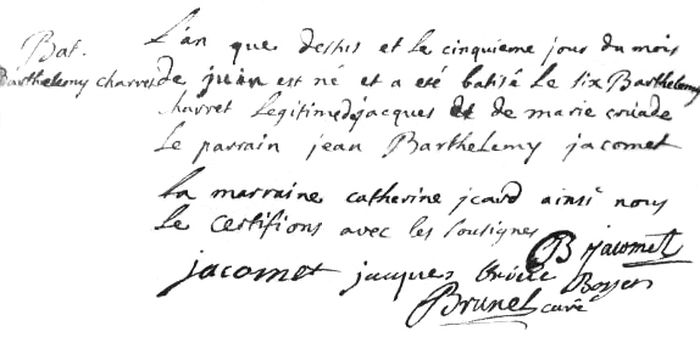 Bat.
Barthelemy charvet
L'an que dessus et le cinquieme jour du mois
de juin est né et a eté batisé le six Barthelemy
charvet legitime de jacques et de marie couade
Le parrain jean Barthelemy jacomet
La marraine catherine jcard ainsi nous
Le certifions avec les sousignes
B jacomet
jacomet jacques Boyer
Brunet curé